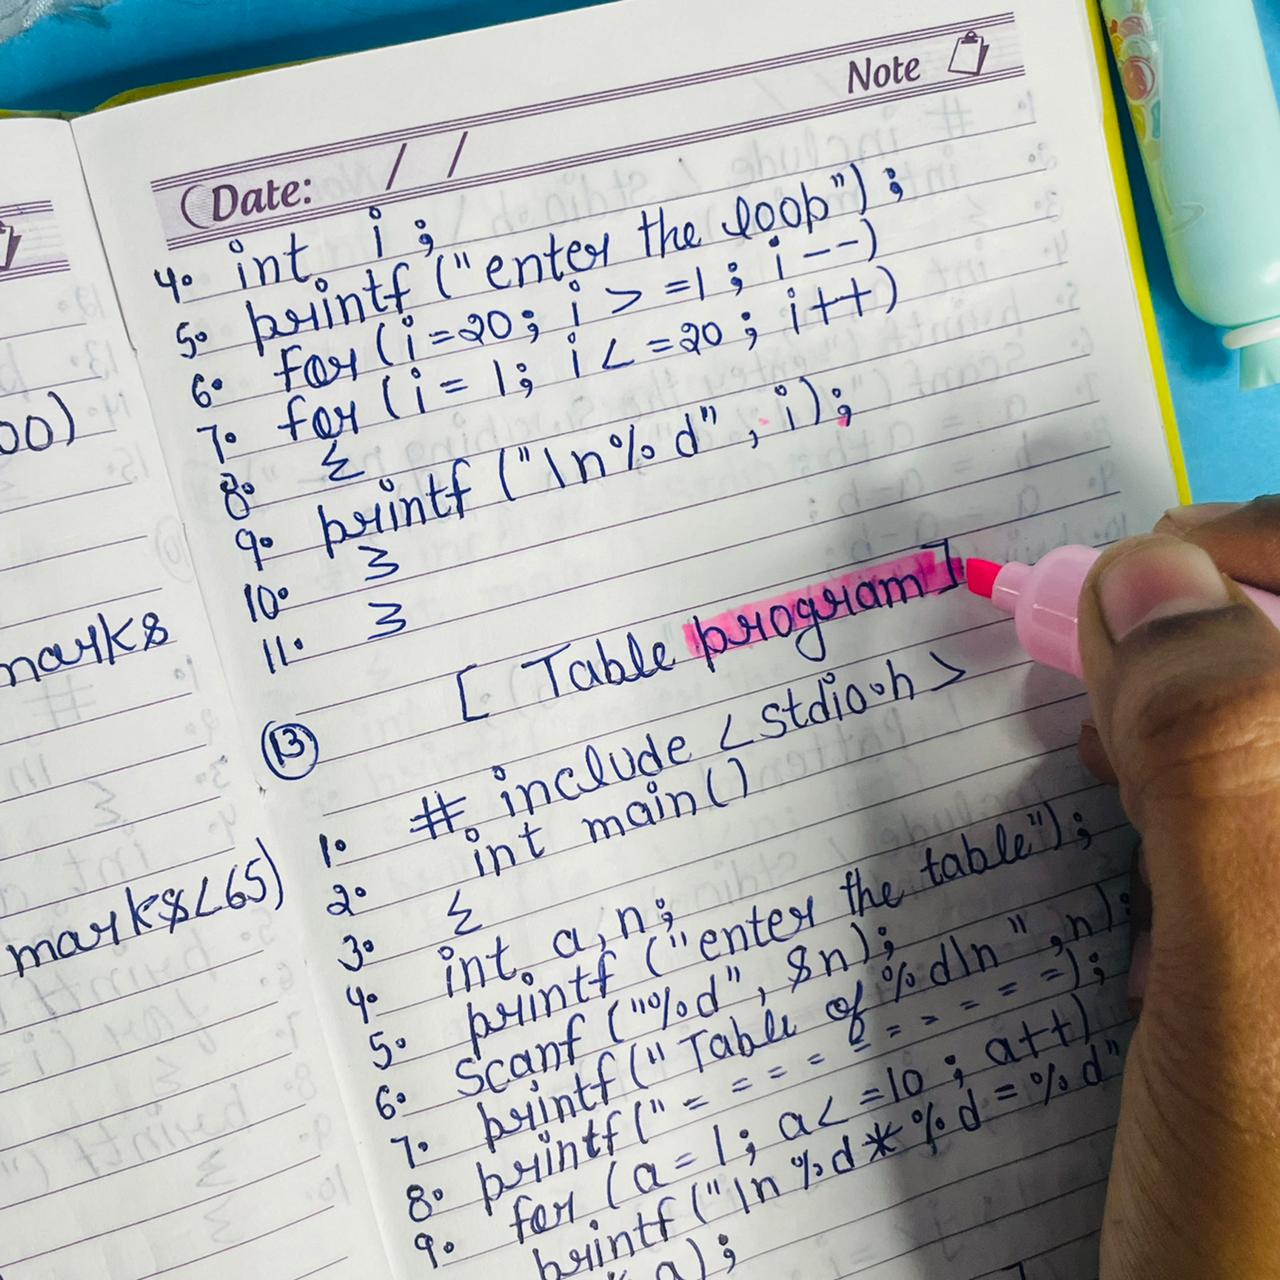 Note
Date: / /
4. int i;
5. printf ("enter the loop");
6. for (i=20; i >=1; i--)
7. for (i= 1; i <=20; i++)
8. {
9. printf ("\n%d", i);
10. }
11. }
[Table program]
13
1. # include <stdio.h>
2. int main()
3. {
4. int a,n;
5. printf ("enter the table");
6. scanf ("%d", &n);
7. printf (" Table of %d\n",n);
8. printf (" = = = = = = = = = =);
9. for (a=1; a<=10; a++)
printf ("\n %d*%d=%d"
a);
00)
marks
marks<65)